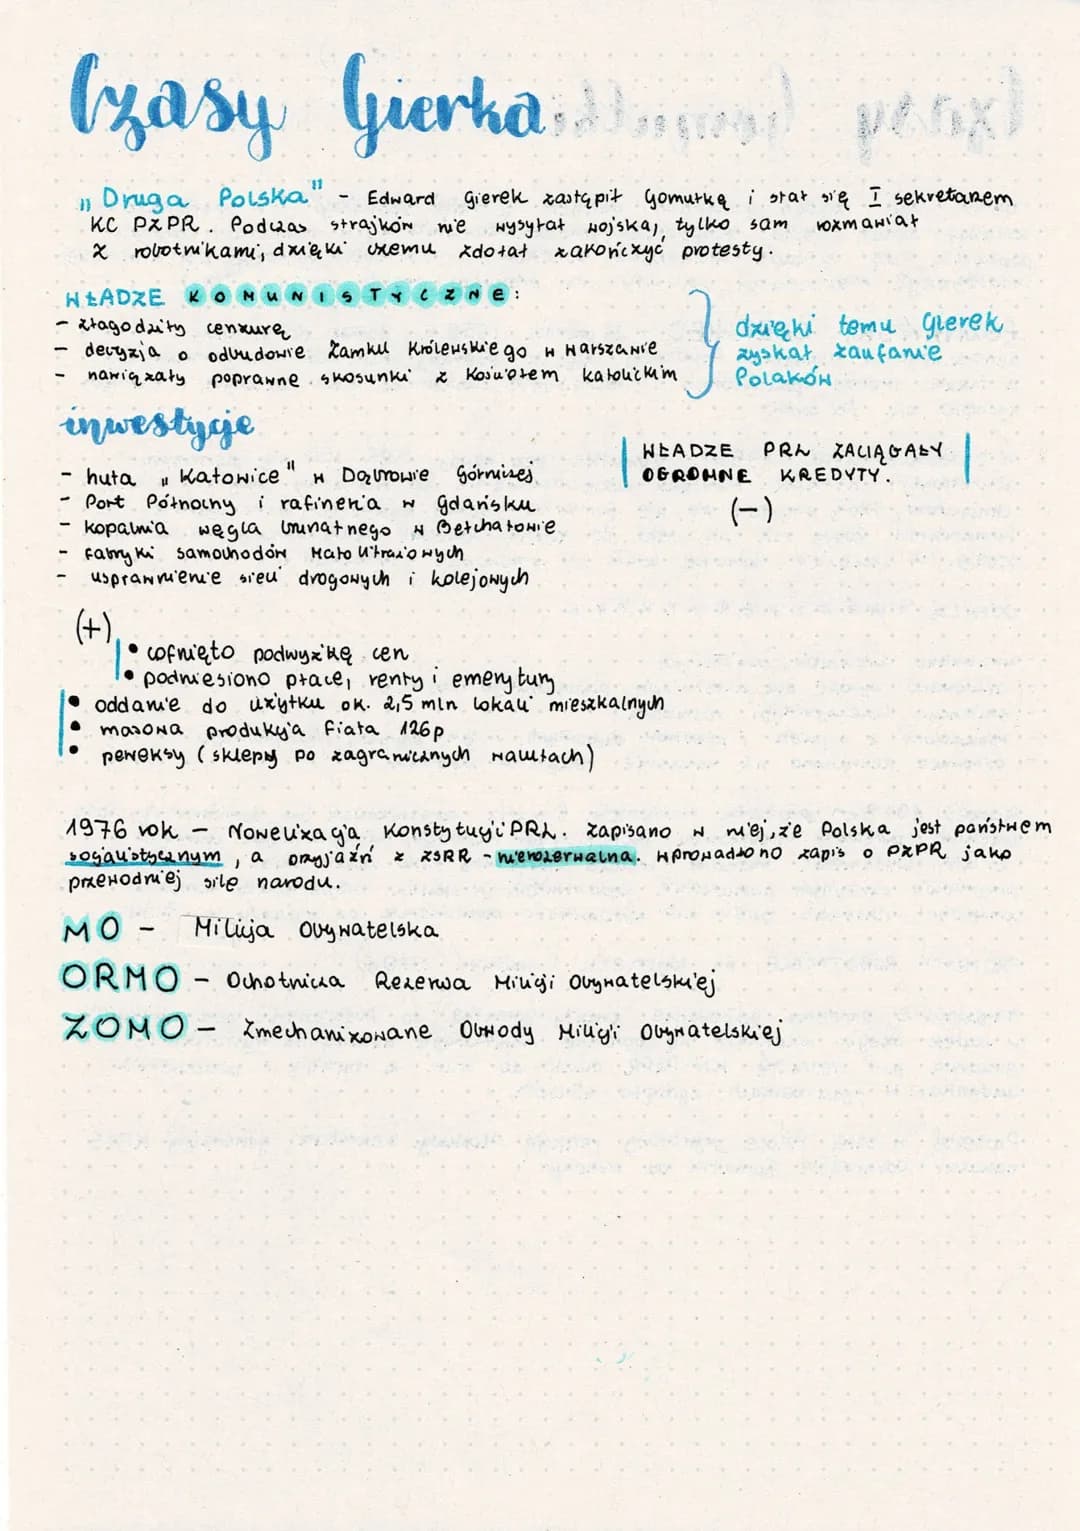 Czasy Gierka
„Druga Polska" - Edward Gierek zastąpił Gomułkę i stał się I sekretarzem
KC PZPR. Podczas strajków nie wysyłał wojska, tylko sam rozmawiał
z robotnikami, dzięki czemu zdołał zakończyć protesty.
WŁADZE KOMUNISTYCZNE:
- złagodziły cenzurę
- decyzja o odbudowie Zamku Królewskiego w Warszawie
- nawiązały poprawne stosunki z Kościołem katolickim
dzięki temu Gierek
zyskał zaufanie
Polaków
inwestycje
- huta „Katowice" w Dąbrowie Górniczej
- Port Północny i rafineria w Gdańsku
- kopalnia węgla brunatnego w Bełchatowie
- fabryki samochodów małolitrażowych
- usprawnienie sieci drogowych i kolejowych
WŁADZE PRL ZACIĄGAŁY
OGROMNE KREDYTY.
(-)
(+)
• cofnięto podwyżkę cen
• podniesiono płace, renty i emerytury
• oddanie do użytku ok. 2,5 mln lokali mieszkalnych
• masowa produkcja Fiata 126p
• peweksy (sklepy po zagranicznych walutach)
1976 rok - Nowelizacja Konstytucji PRL. Zapisano w niej, że Polska jest państwem
socjalistycznym, a przyjaźń z ZSRR - nierozerwalna. Wprowadzono zapis o PZPR jako
przewodniej sile narodu.
MO - Milicja Obywatelska
ORMO - Ochotnicza Rezerwa Milicji Obywatelskiej
ZOMO - Zmechanizowane Obwody Milicji Obywatelskiej